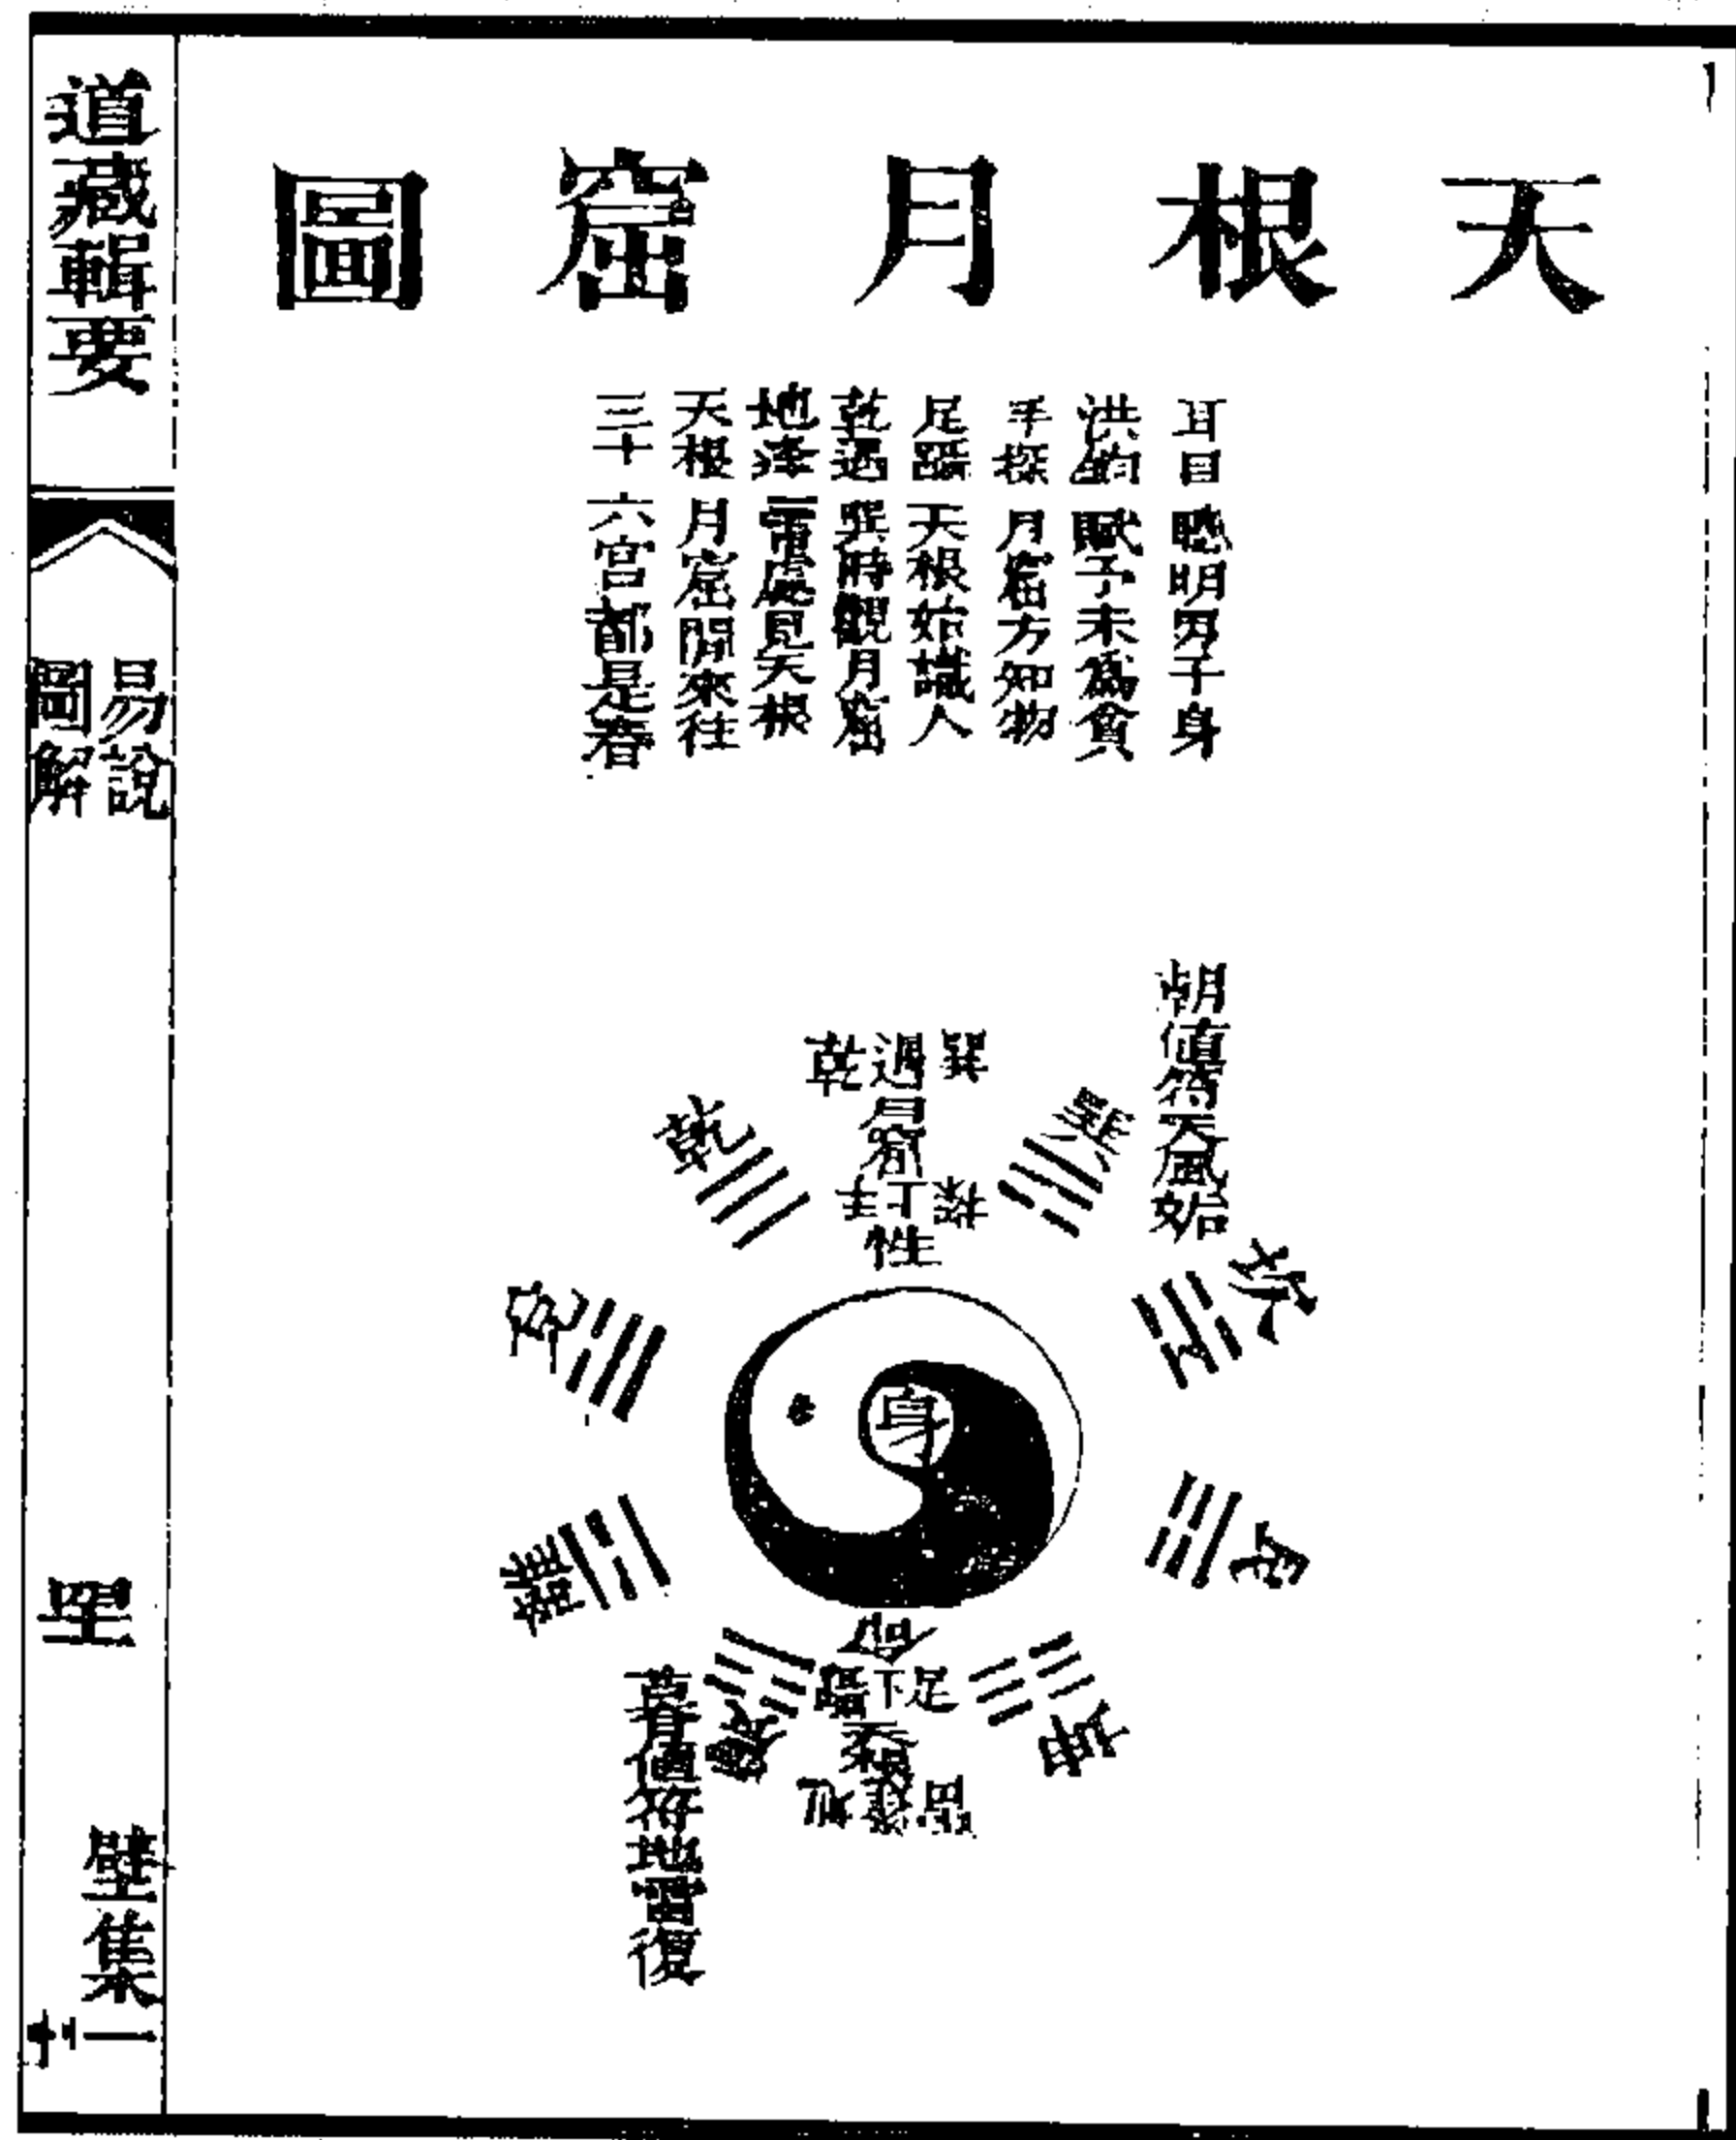 天根月窟圖
耳目聰明男子身
洪鈞賦予未為貧
手探月窟方知物
足躡天根始識人
乾遇巽時觀月窟
地逢雷處見天根
天根月窟閒來往
三十六宮都是春
天風姤
巽
遇
乾
月窟
性
乾
巽
兌
坎
離
艮
震
坤
身
命
足下躡
天根
地雷復
道藏輯要
易說
圖解
璧集一